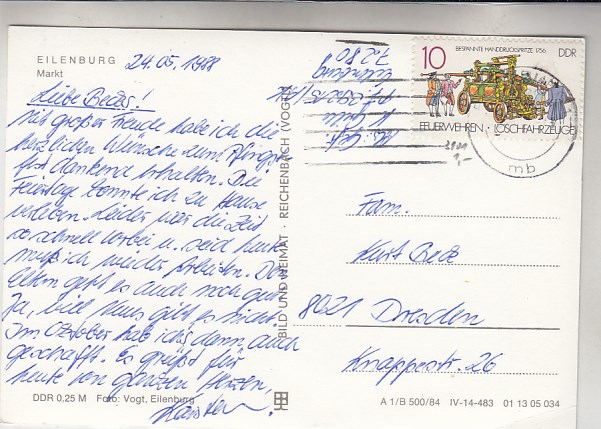 EILENBURG
Markt
24.05.1988
Liebe Becks!
Mit großer Freude habe ich die
herzlichen Wünsche zum Pfingst-
fest dankend erhalten. Die
Feiertage konnte ich zu Hause
verleben. Leider war die Zeit
so schnell vorbei u. seid heute
muß ich wieder arbeiten. Den
Eltern geht es auch noch gut.
Ja, viel Neues gibt es nicht.
Im Oktober hab ich's dann auch
geschafft. Es grüßt für
heute von ganzem Herzen,
DDR 0,25 M Foto: Vogt, Eilenburg
BILD UND HEIMAT · REICHENBACH (VOGTL)
Eilenburg
7280
10
BESPANNTE HANDDRUCKSPRITZE 1756
DDR
FEUERWEHREN · LÖSCHFAHRZEUGE
mb
Fam.
Kurt Beck
8021 Dresden
Knappestr. 26
A 1/B 500/84 IV-14-483 01 13 05 034